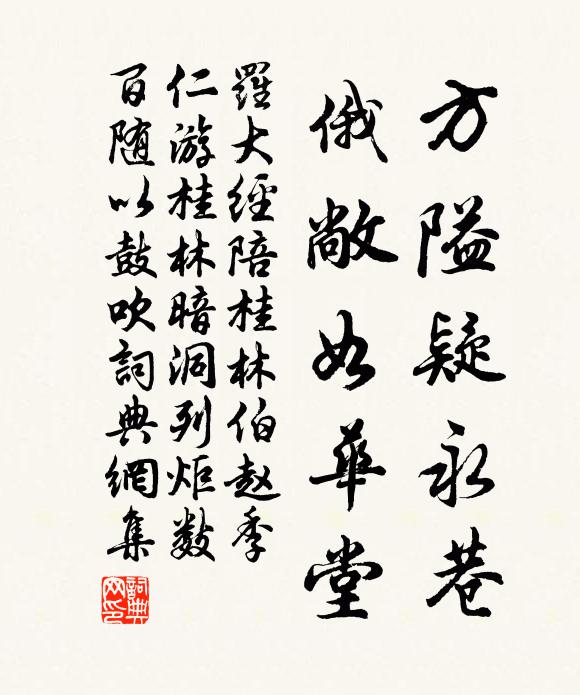 方隘疑永巷
俄敞如華堂
羅大經陪桂林伯赵季
仁游桂林暗洞列炬数
百随以鼓吹詞典網集
詞典網印